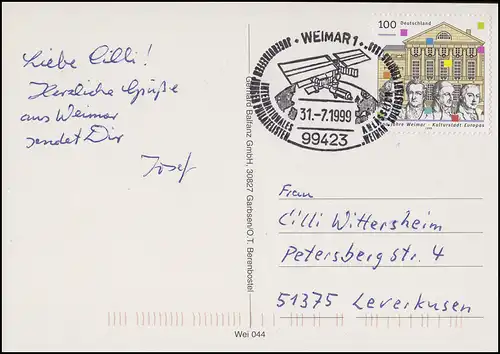 Liebe Cilli!
Herzliche Grüße
aus Weimar
sendet Dir
Josef
Gerhard Balfanz GmbH, 30827 Garbsen/O.T. Berenbostel
Wei 044
WEIMAR 1
INTERNATIONALES
JUNGER PHILATELISTEN
31.-7.1999
99423
100
Deutschland
Jahre Weimar - Kulturstadt Europas
Frau
Cilli Wittersheim
Petersbergstr. 4
51375 Leverkusen